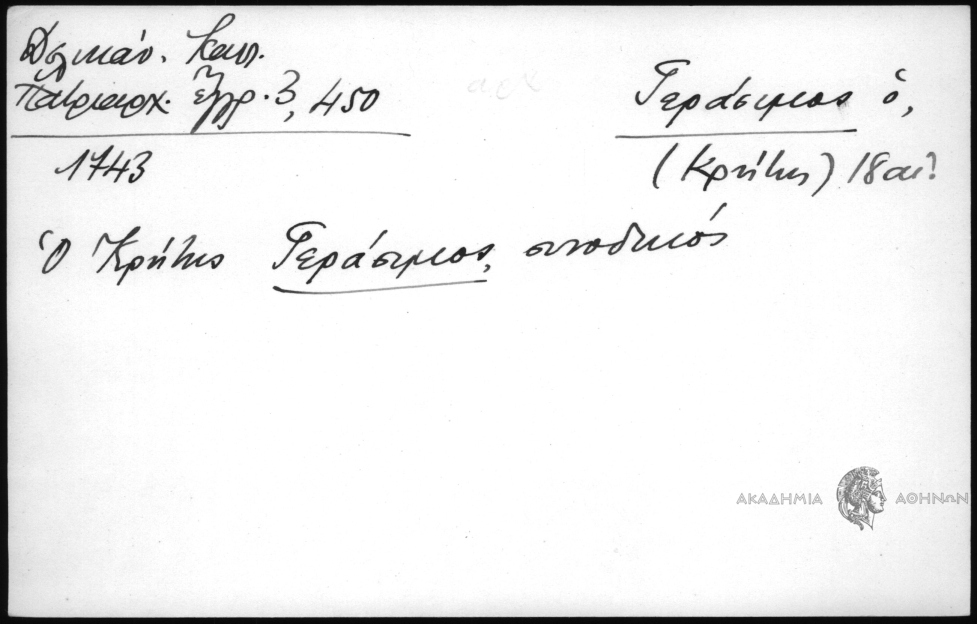 Δελικάν. Καλ.
Πατριαρχ. ἔγγρ. 3, 450
1743
Γεράσιμος ὁ,
(Κρήτης) 18 αἰ.
Ὁ Κρήτης Γεράσιμος, συνοδικός
ΑΚΑΔΗΜΙΑ ΑΘΗΝΩΝ